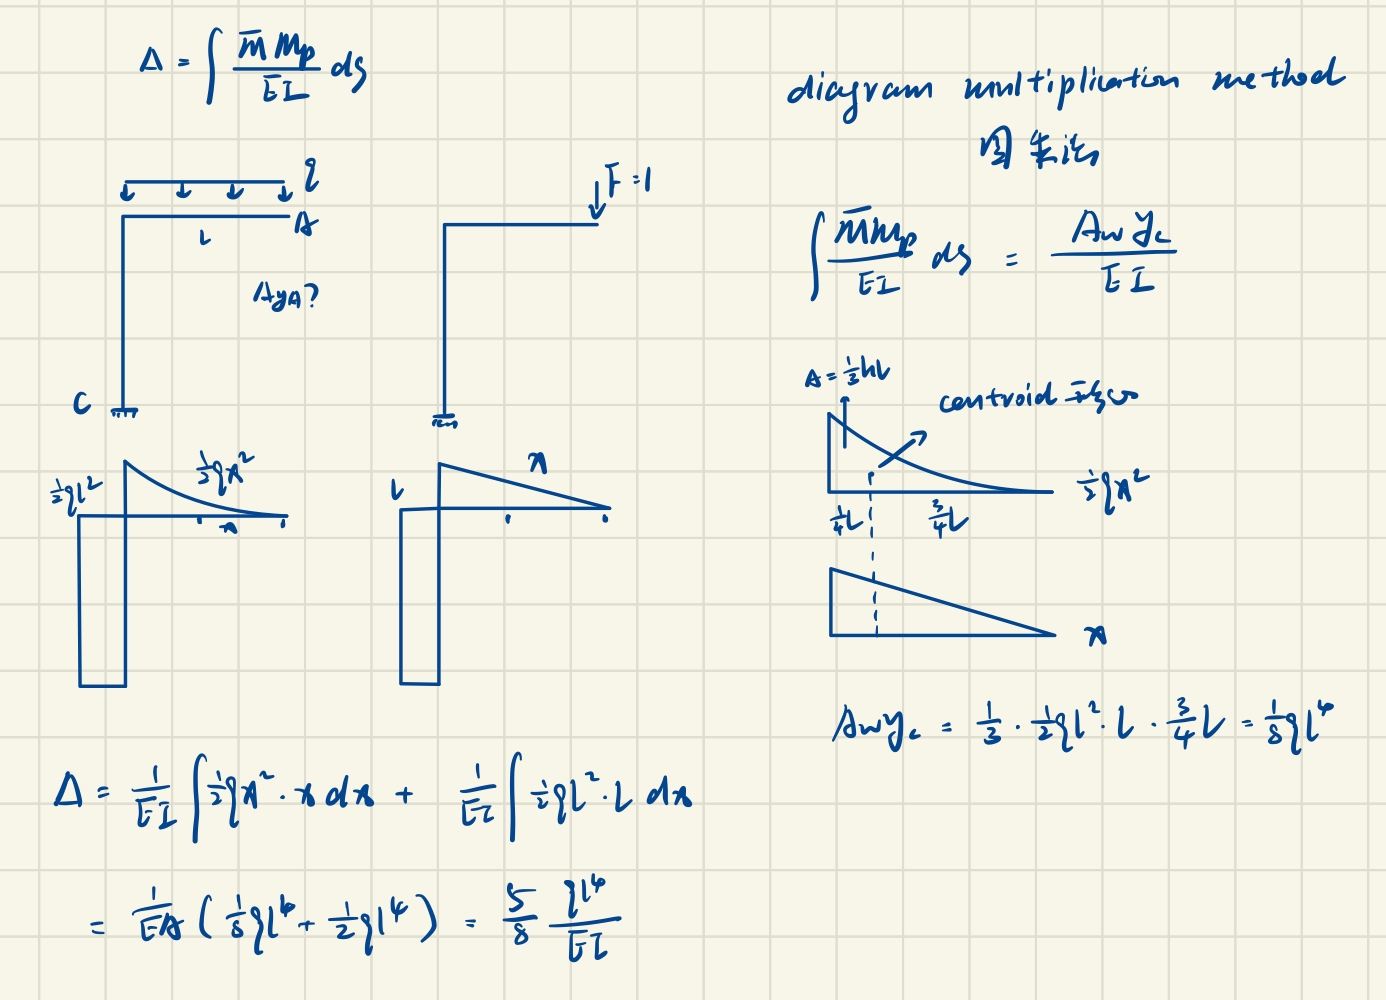 Δ = ∫ M̄ Mp / EI ds
q
A
L
ΔyA?
C
F=1
½ql²
½qx²
x
L
x
Δ = 1/EI ∫ ½qx² · x dx + 1/EI ∫ ½ql² · L dx
= 1/EA ( 1/8 ql⁴ + 1/2 ql⁴ ) = 5/8 ql⁴/EI
diagram multiplication method
图乘法
∫ M̄Mp / EI ds = Aw yc / EI
A = ⅓hL
centroid 形心
½qx²
¼L
¾L
x
Aw yc = 1/3 · ½ql² · L · 3/4 L = 1/8 ql⁴